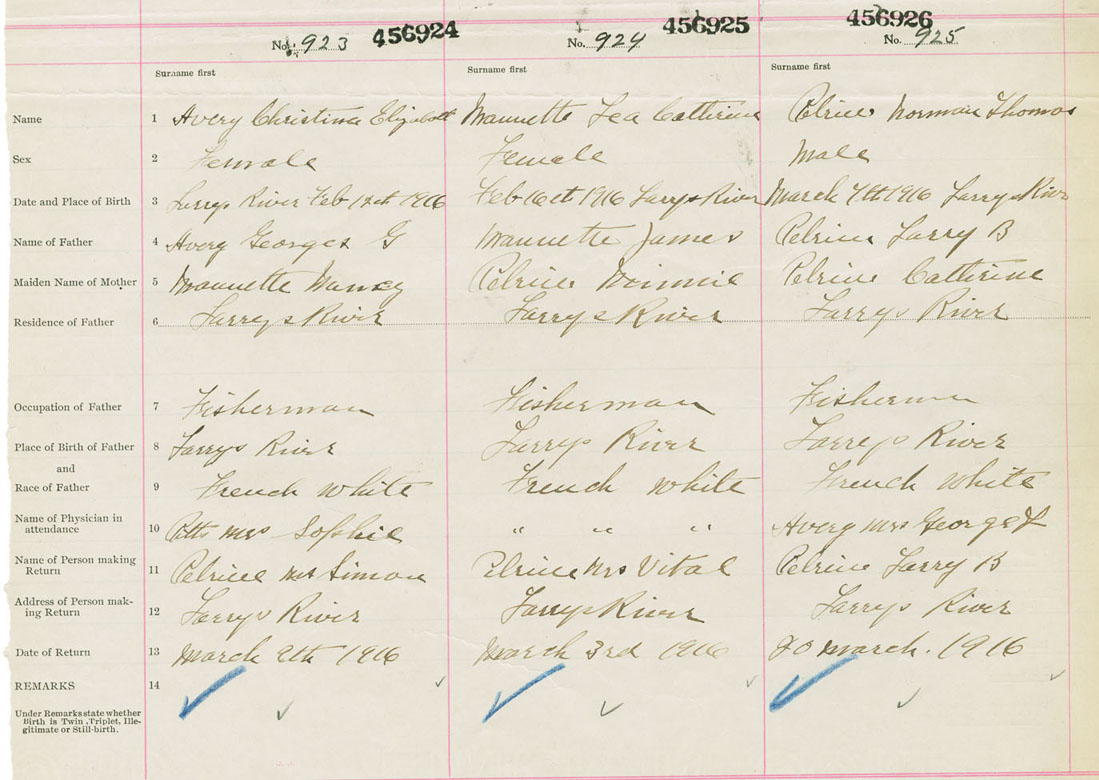 456924 456925 456926
No. 923 No. 924 No. 925
Surname first Surname first Surname first
Name 1 Avery Christina Elizabeth Mannette Lea Catherine Pelrine Norman Thomas
Sex 2 Female Female Male
Date and Place of Birth 3 Larrys River Feb 12th 1916 Feb 16th 1916 Larrys River March 7th 1916 Larrys River
Name of Father 4 Avery Georges G Mannette James Pelrine Larry B
Maiden Name of Mother 5 Mannette Nancy Pelrine Minnie Pelrine Catherine
Residence of Father 6 Larrys River Larrys River Larrys River
Occupation of Father 7 Fisherman Fisherman Fisherman
Place of Birth of Father 8 Larrys River Larrys River Larrys River
and
Race of Father 9 French White French White French White
Name of Physician in
attendance 10 Mrs Sophie " " " Avery Mrs George
Name of Person making
Return 11 Pelrine Mr Simon Pelrine Mrs Vital Pelrine Larry B
Address of Person mak-
ing Return 12 Larrys River Larrys River Larrys River
Date of Return 13 March 9th 1916 March 3rd 1916 20 March. 1916
REMARKS 14
Under Remarks state whether
Birth is Twin, Triplet, Ille-
gitimate or Still-birth.